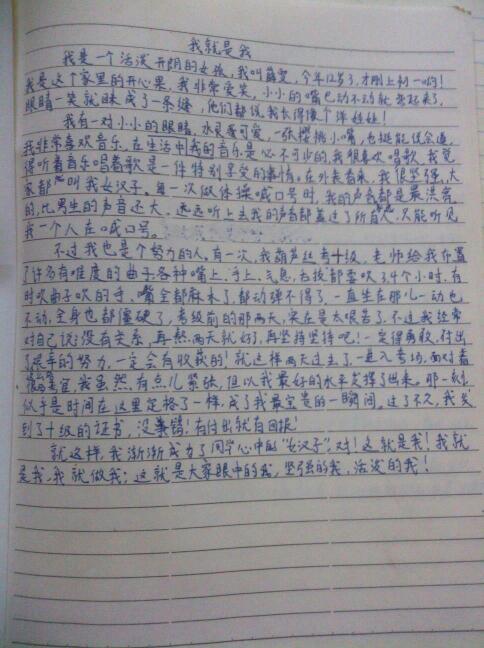 我就是我
我是一个活泼开朗的女孩,我叫薛雯,今年12岁了,才刚上初一哟!
我是这个家里的开心果,我非常爱笑,小小的嘴巴动不动就
眼睛一笑就眯成了一条缝,他们都说我长得像个洋娃娃!
我有一对小小的眼睛,水灵可爱,一张樱桃小嘴,也挺能说会道,
我非常喜欢音乐,在生活中我的音乐是必不可少的,我很喜欢唱歌,我觉
得听着音乐唱着歌是一件特别享受的事情。在外表看来,我很坚强,大
家都叫我女汉子。每一次做体操喊口号时,我的声音都是最洪亮
的,比男生的声音还大。远远听上去我的声音都盖过了所有人,只能听见
我一个人在喊口号。
不过我也是个努力的人,有一次,我葫芦丝考十级,老师给我布置
了许多有难度的曲子各种嘴上、手上、气息、右按都要吹了4个小时,有
时吹曲子吹的手、嘴全都麻木了,都动弹不得了,一直坐在那儿一动也
不动,全身也都僵硬了,考级前的那两天,实在是太艰苦了,不过我经常
对自己说:没有关系,再熬两天就好了,再坚持坚持吧!一定得勇敢,付出
了艰辛的努力,一定会有收获的!就这样两天过去了,一进入考场,面对着
很多考官,我虽然有点儿紧张,但以我最好的水平发挥了出来。那一刻,
似乎是时间在这里定格了一样,成了我最宝贵的一瞬间。过了不久,我收
到了十级的证书,没错!有付出就有回报!
就这样,我渐渐成为了同学心中的"女汉子",对!这就是我!我就
是我,我就做我;这就是大家眼中的我,坚强的我,活泼的我!